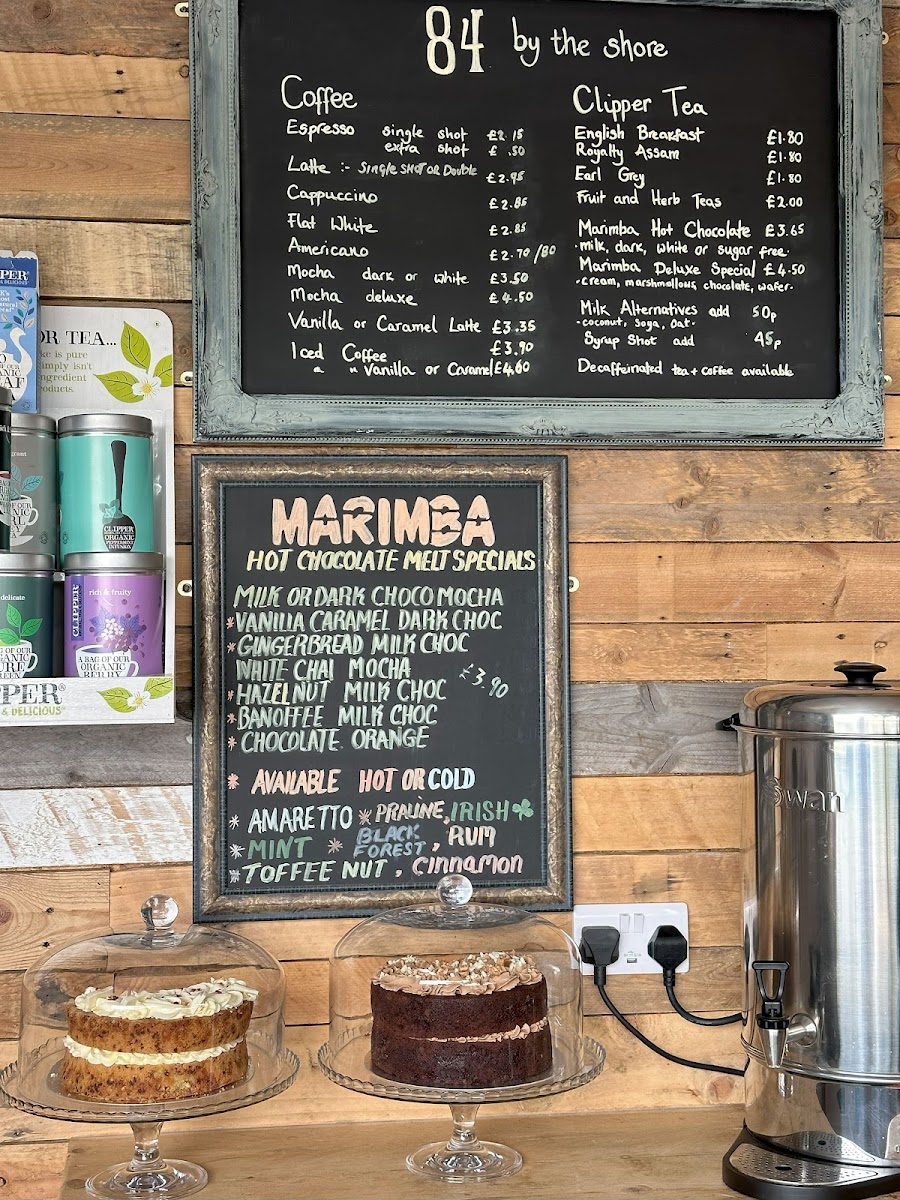 84 by the shore
Coffee
Espresso single shot £2.15
extra shot £ .50
Latte :- Single SHOT OR Double £2.95
Cappuccino £2.85
Flat White £2.85
Americano £2.70/80
Mocha dark or white £3.50
Mocha deluxe £4.50
Vanilla or Caramel Latte £3.35
Iced Coffee £3.90
" " Vanilla or Caramel £4.60
Clipper Tea
English Breakfast £1.80
Royalty Assam £1.80
Earl Grey £1.80
Fruit and Herb Teas £2.00
Marimba Hot Chocolate £3.65
·milk, dark, white or sugar free·
Marimba Deluxe Special £4.50
·cream, marshmallows, chocolate, wafer·
Milk Alternatives add 50p
-coconut, Soya, Oat·
Syrup Shot add 45p
Decaffeinated tea+coffee available
MARIMBA
HOT CHOCOLATE MELT SPECIALS
MILK OR DARK CHOCO MOCHA
*VANILLA CARAMEL DARK CHOC
*GINGERBREAD MILK CHOC
WHITE CHAI MOCHA
£3.90
*HAZELNUT MILK CHOC
*BANOFFEE MILK CHOC
* CHOCOLATE ORANGE
* AVAILABLE HOT OR COLD
* AMARETTO * PRALINE, IRISH
* MINT * BLACK FOREST, RUM
* TOFFEE NUT, Cinnamon
PER
OR TEA...
ke is pure
simply isn't
ngredient
roducts.
CLIPPER
ORGANIC
INFUSION
delicate
rich & fruity
CLIPPER
A BAG OF OUR
ORGANIC
BERRY
AG OF OUR
GANIC
URE
REEN
PPER®
& DELICIOUS
Swan
swan